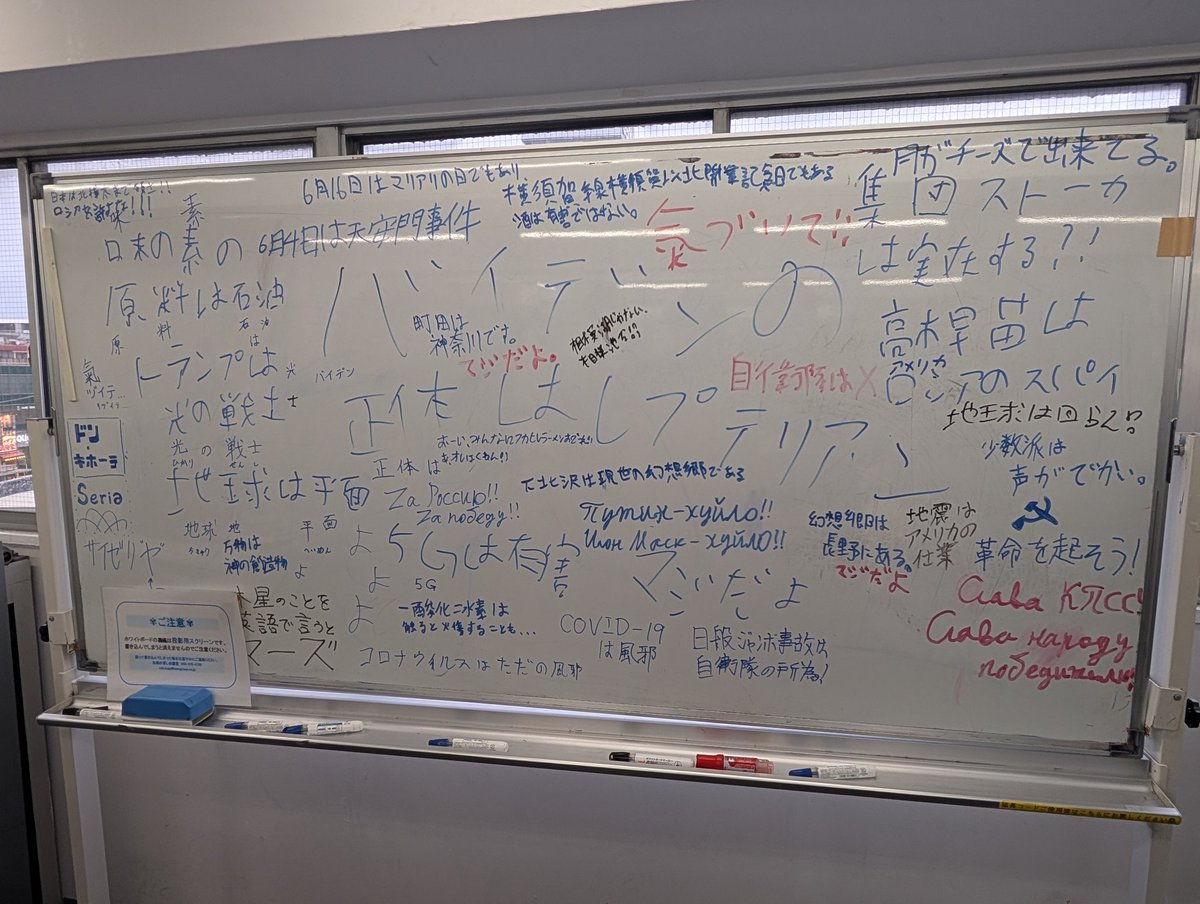 6月16日はマリアリの日でもあり、
横須賀線横須賀以北開業記念日でもある
酒は有害ではない。
月がチーズで出来てる。
6月4日は天安門事件
氣づいて!!
集団ストーカー
は実在する?!
素
口末の素の
原料は石油
原 料 石油は
バイデンの
町田は
神奈川です。
てじだよ。
相模湖じゃない、
相模池だ!?
高木早苗は
アメリカ
ロシアのスパイ
自衛隊は×
氣
ヅイテ...
トランプは
光
バイデン
光の戦士
士
正体はレプテリアン
地球は回らん?
少数派は
声がでかい。
ドン・
キホーテ
光の戦士
ひかり せんし
正体は
下北沢は現世の幻想郷である
Seria
地球は平面
Za Россию!!
Za победу!!
Путин-хуйло!!
Илон Маск-хуйло!!
幻想郷は
長野にある。
てじだよ
地震は
アメリカの
仕業
革命を起そう!
サイゼリヤ
地球 地 平面
ちきゅう へいめん
万物は
神の創造物
よ
よ
よ
よ
5Gは有害
5G
てじだよ
Слава КПСС!
Слава народу
победителю!
木星のことを
英語で言うと
スーズ
一酸化二水素は
触ると火傷することも...
COVID-19
は風邪
コロナウイルスはただの風邪
日航ジャンボ事故は
自衛隊の所為!
＊ご注意＊
ホワイトボードの裏面は投影用スクリーンです。
書き込んでしまうと消えませんのでご注意ください。